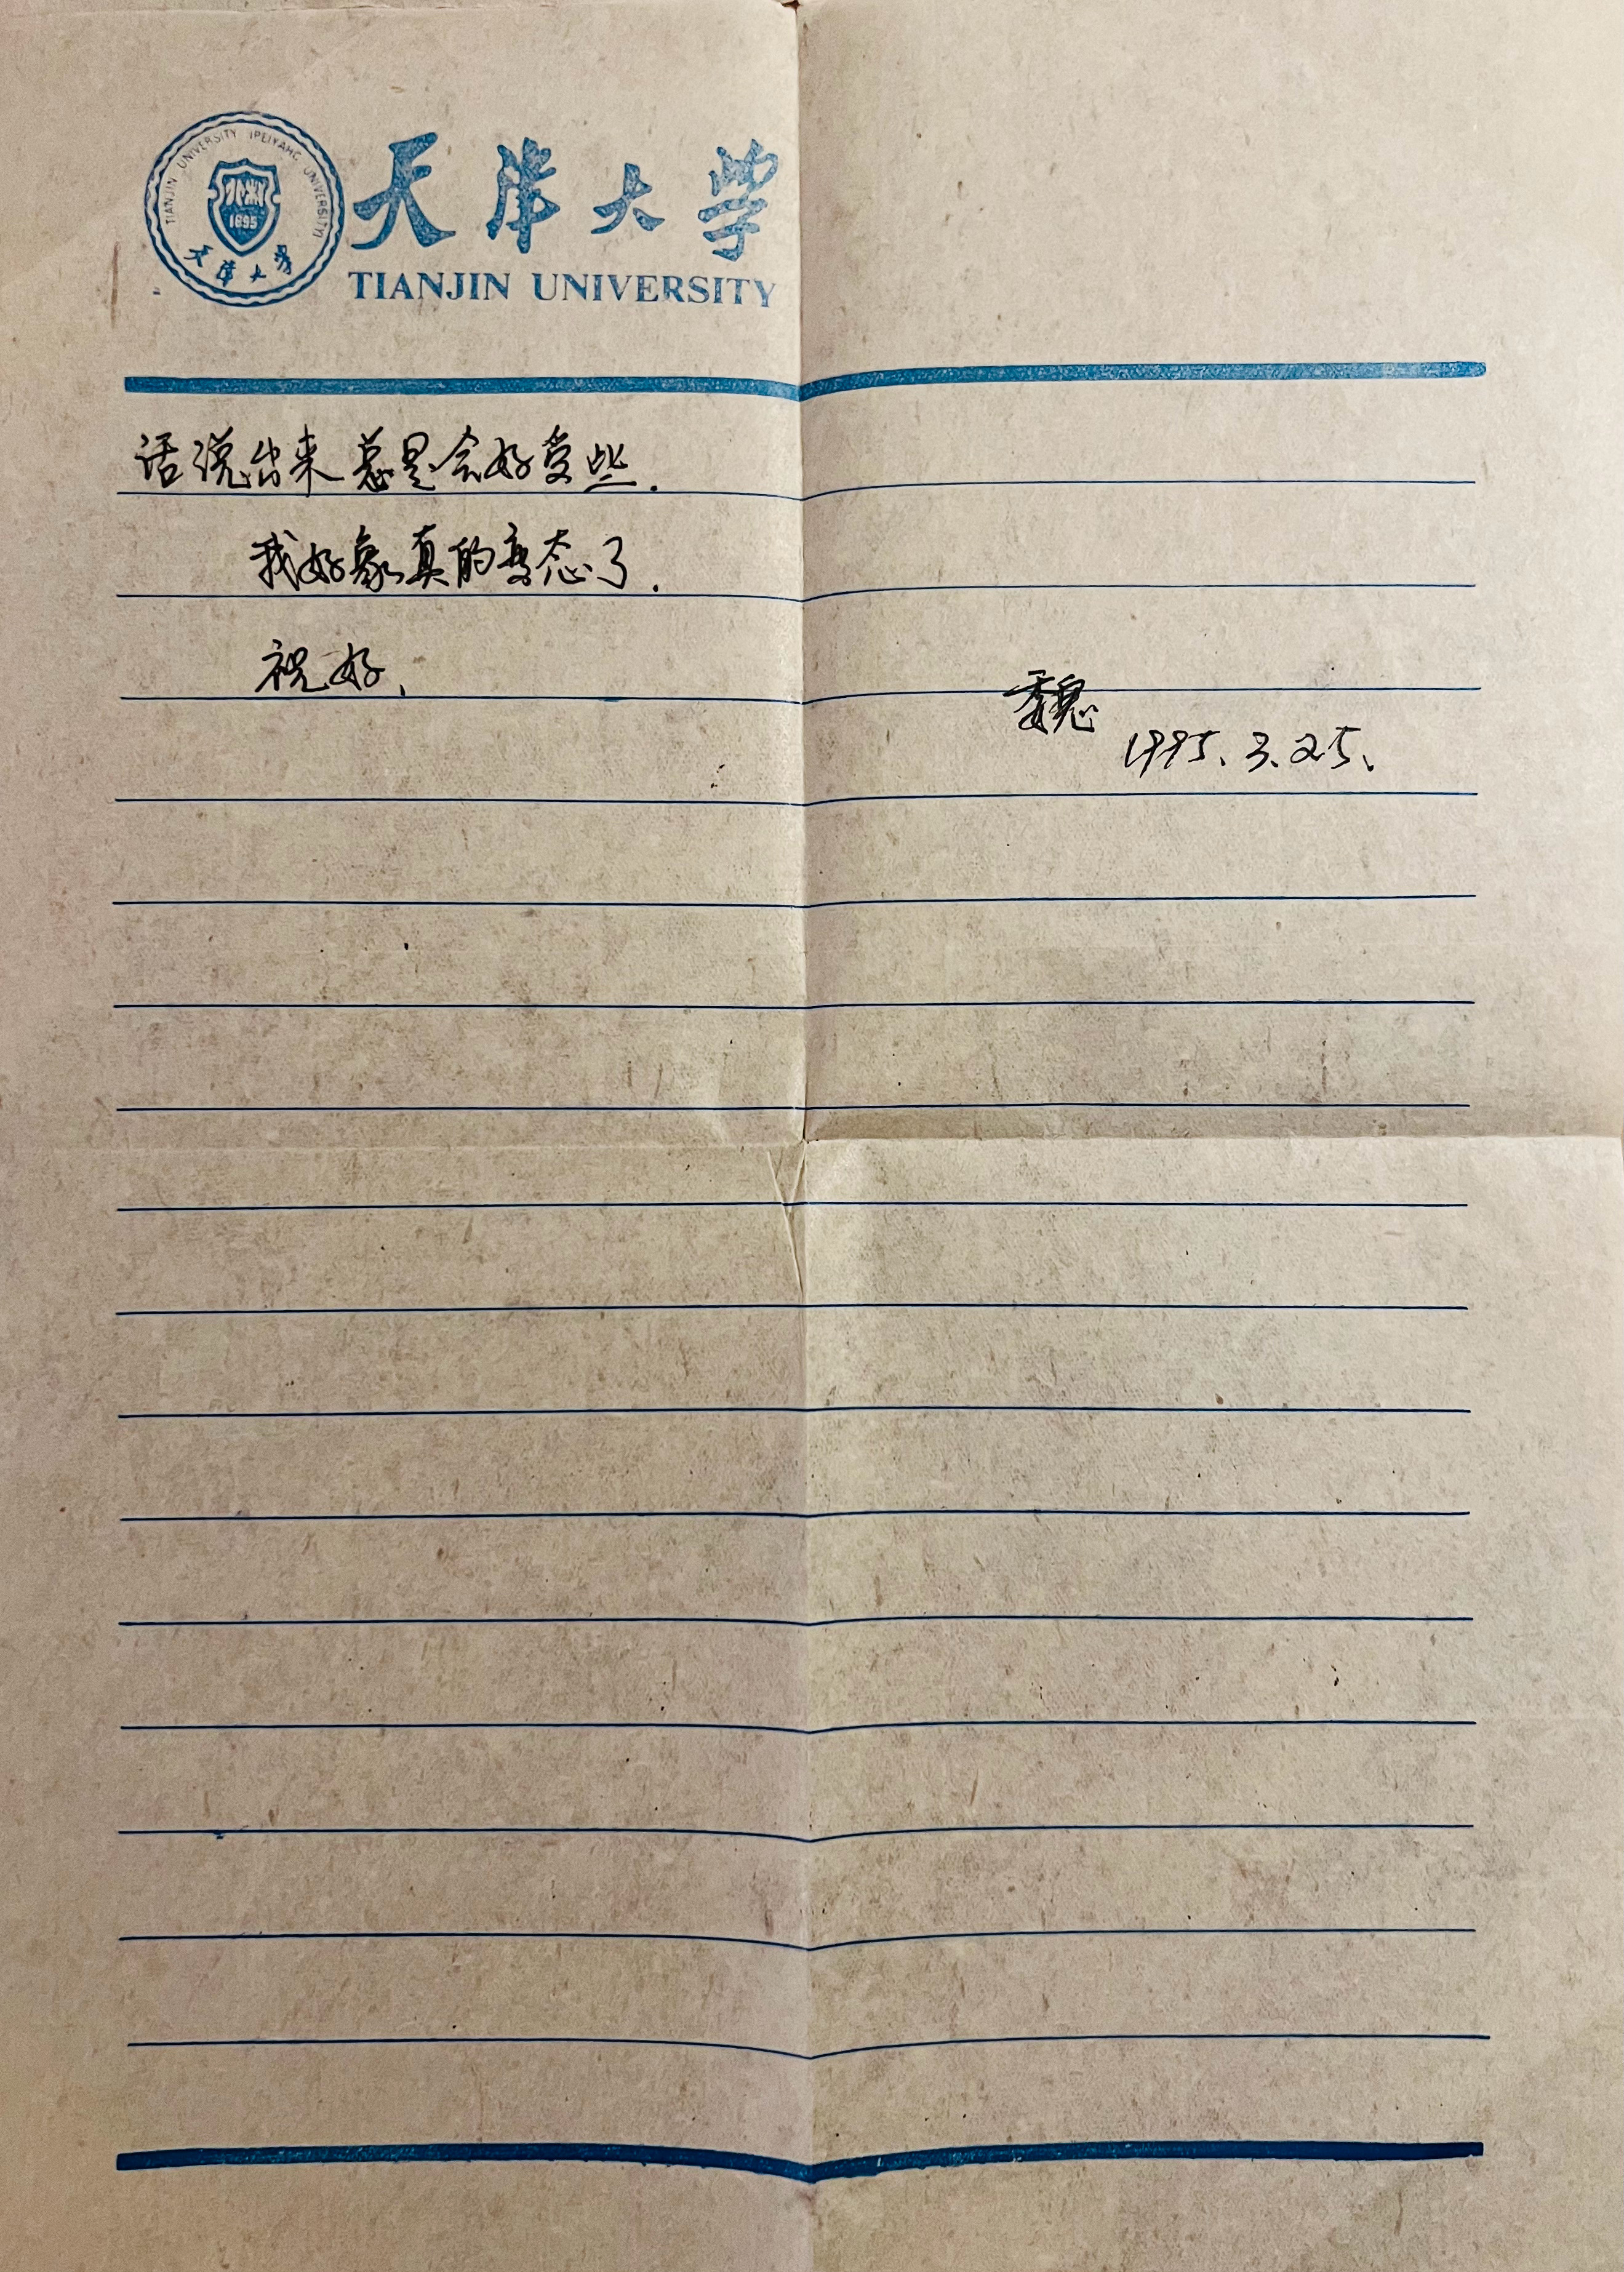 TIANJIN UNIVERSITY (PEIYANG UNIVERSITY)
北洲
1895
天津大学
天津大学
TIANJIN UNIVERSITY
话说出来总是会好受些.
我好象真的变态了.
祝好、
魏
1995、3、25、